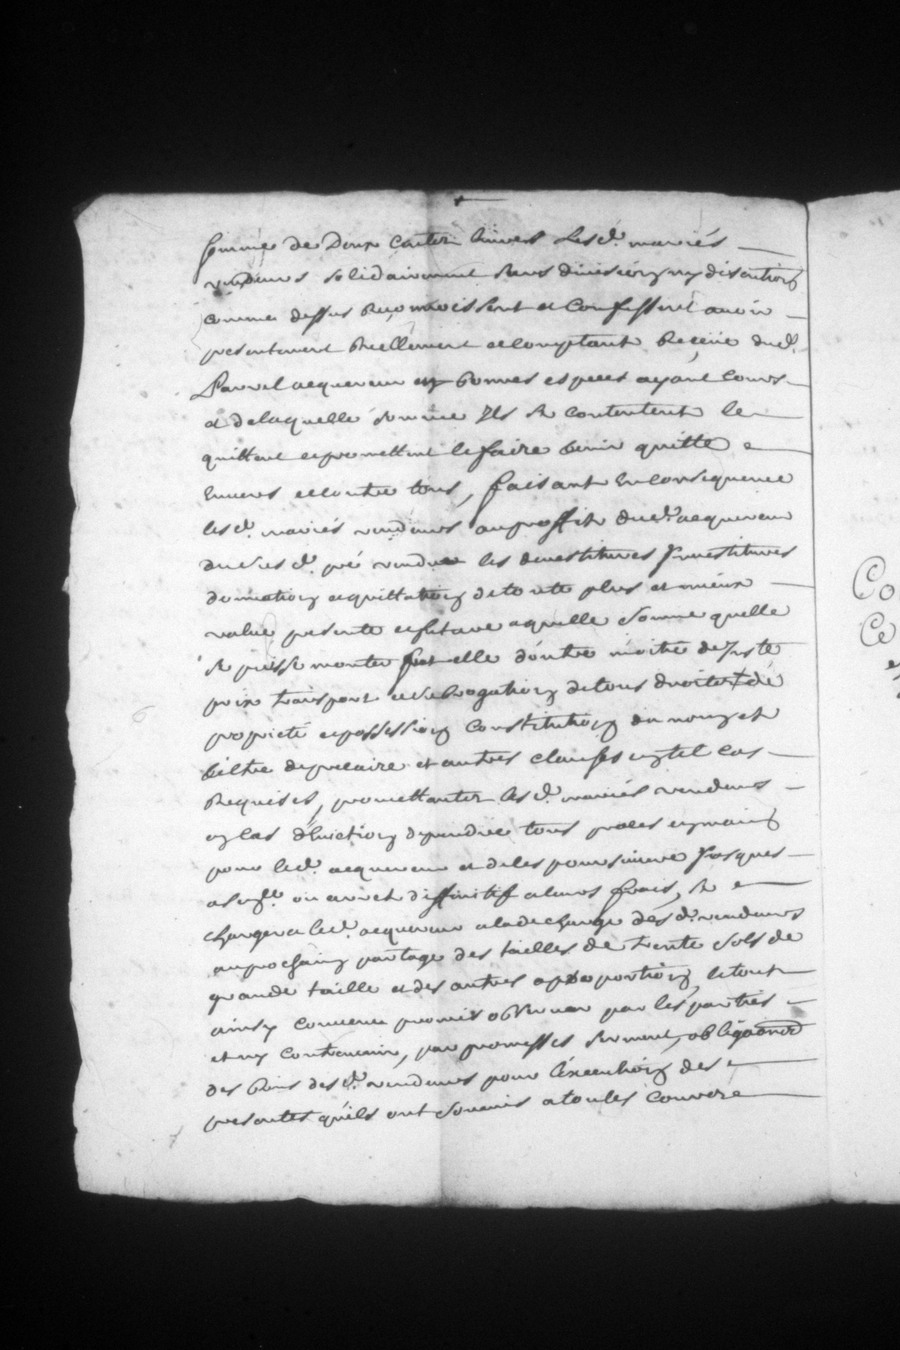 somme de Deux cents livres Lesd. mariés
vendeurs solidairement sans division ny discution
comme dessus Reconnoissent et Confessent avoir
presentement Reellement et comptant Receüe dud.
acquereur en bonnes especes ayant cours
et delaquelle somme Ils se contentent le
quittent et promettent le faire tenir quitte
envers et contre tous, faisant En consequence
lesd. mariés vendeurs au proffit dud. acquereur
du susd. pré vendu les devestitures Investitures
donnation et quittation de toute plus et mieux
value presente et future a quelle somme quelle
se puisse monter fut elle d'outre moitié de Juste
prix transport et subrogation de tous droits de
proprieté et possession Constitution du nom et
tiltre de precaire et autres clauses en tel cas
Requises, promettants lesd. mariés vendeurs
en cas d'Eviction de prendre tous proces en main
pour led. acquereur et de les poursuivre Jusques
a sent. ou arret diffinitif a leurs frais, se
chargera led. acquereur a la decharge desd. vendeurs
au prochain partage des tailles de trente sols de
grande taille et des autres a proportion, le tout
ainsy convenu promis observer par les parties
et ny contrevenir, par promesses serment, obligation
des biens desd. vendeurs pour l'execution des
presentes qu'ils ont soumis a toutes Cours
Co
Ce